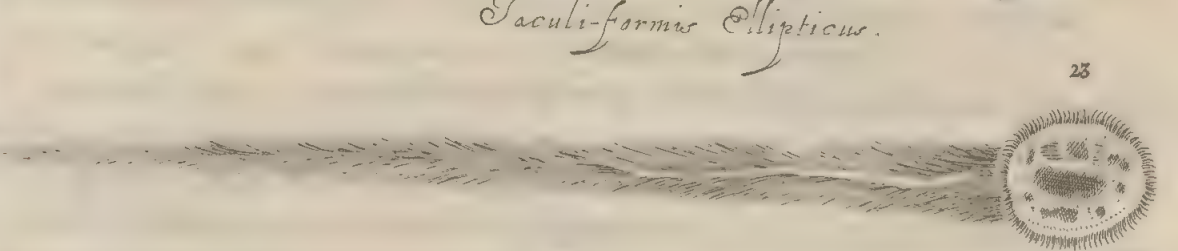 Jaculi-formis Ellipticus.
23